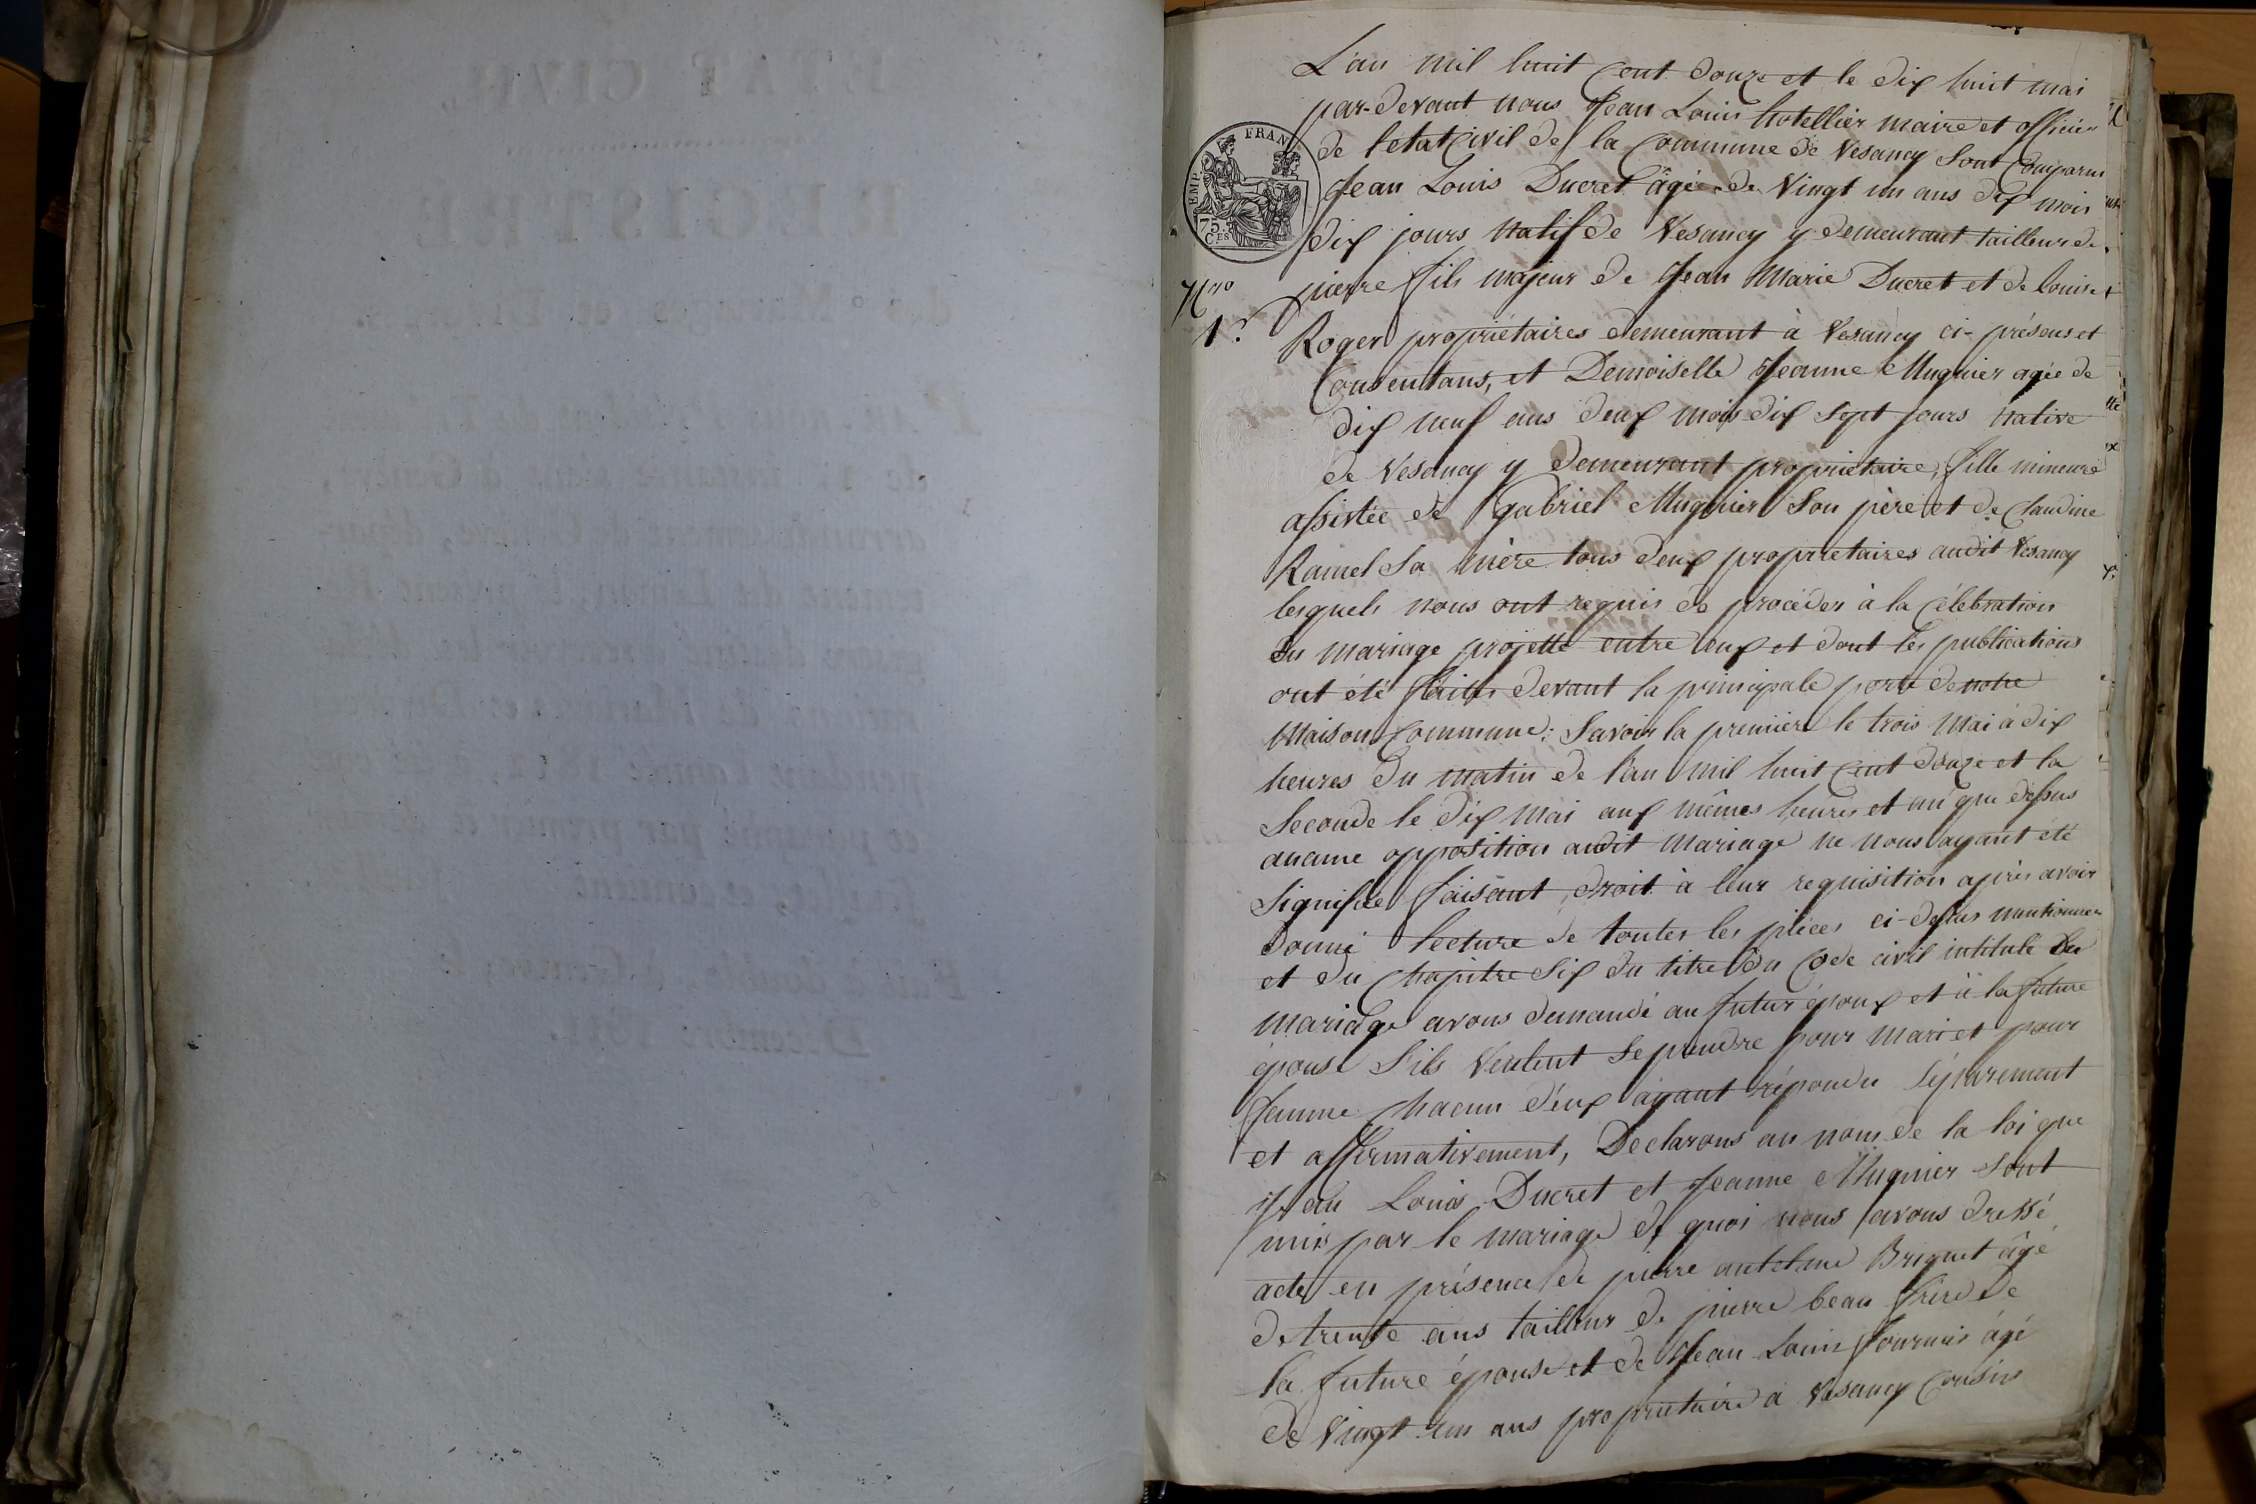 EMP. FRAN
75.
C.ES
N.ro
1.er
L'an mil huit cent douze et le dix huit mai
par-devant nous Jean Louis hotellier maire et officier
de l'etat Civil de la Commune de Vesancy Sont Comparus
Jean Louis Ducret âgée de Vingt un ans dix mois
dix jours natif de Vesancy y demeurant tailleur de
pierre fils majeur de Jean Marie Ducret et de Louise
Roger propriétaires demeurant à Vesancy ci-présens et
Consentans, et Demoiselle Jeanne Mugnier agée de
dix neuf ans deux mois dix sept jours native
de Vesancy y demeurant propriétaire, fille mineure
assistée de gabriel Mugnier Son père et de Claudine
Ramel Sa mère tous deux propriétaires audit Vesancy
lesquels nous ont requis de procéder à la Célébration
du mariage projetté entre eux et dont les publications
ont été faites devant la principale porte de notre
Maison Commune: Savoir la première le trois mai à dix
heures du matin de l'an mil huit Cent douze et la
Seconde le dix mai aux mêmes heures et an que dessus
aucune opposition audit mariage ne nous ayant été
Signifiée faisant droit à leur requisition après avoir
donné lecture de toutes les pièces ci-dessus mentionnées
et du Chapitre Six du titre du Code civil intitulé du
mariage avons demandé au futur époux et à la future
épouse S'ils Veulent Se prendre pour mari et pour
femme Chacun d'eux ayant répondu Séparement
et affirmativement, Declarons au nom de la loi que
Jean Louis Ducret et Jeanne Mugnier Sont
unis par le mariage de quoi nous avons dressé
acte en présence de pierre antelme Briquet âgé
de trente ans tailleur de pierre beau frère de
la future épouse et de Jean Louis fournier âgé
de Vingt un ans propriétaire à Vesancy Cousin